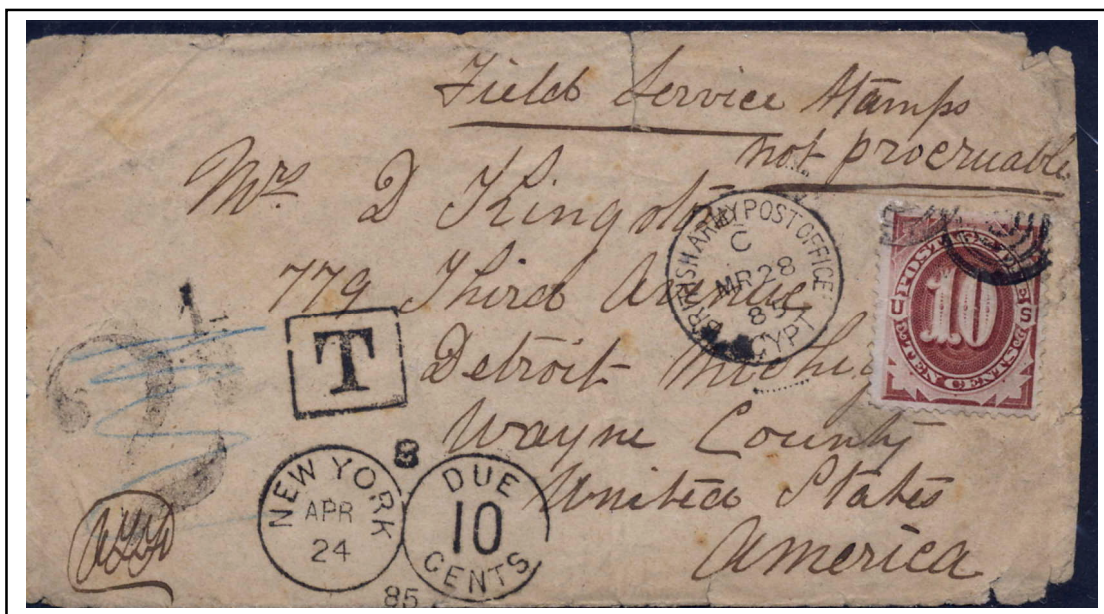 Field Service Stamps
not procruable
Mrs D Kingston
779 Third Avenue
Detroit Michig
Wayne County
United States
America
BRITISH ARMY POST OFFICE
C
MR 28
85
EGYPT
POSTAGE DUE
10
U S
T
1
2
NEW YORK
APR
24
85
8
DUE
10
CENTS